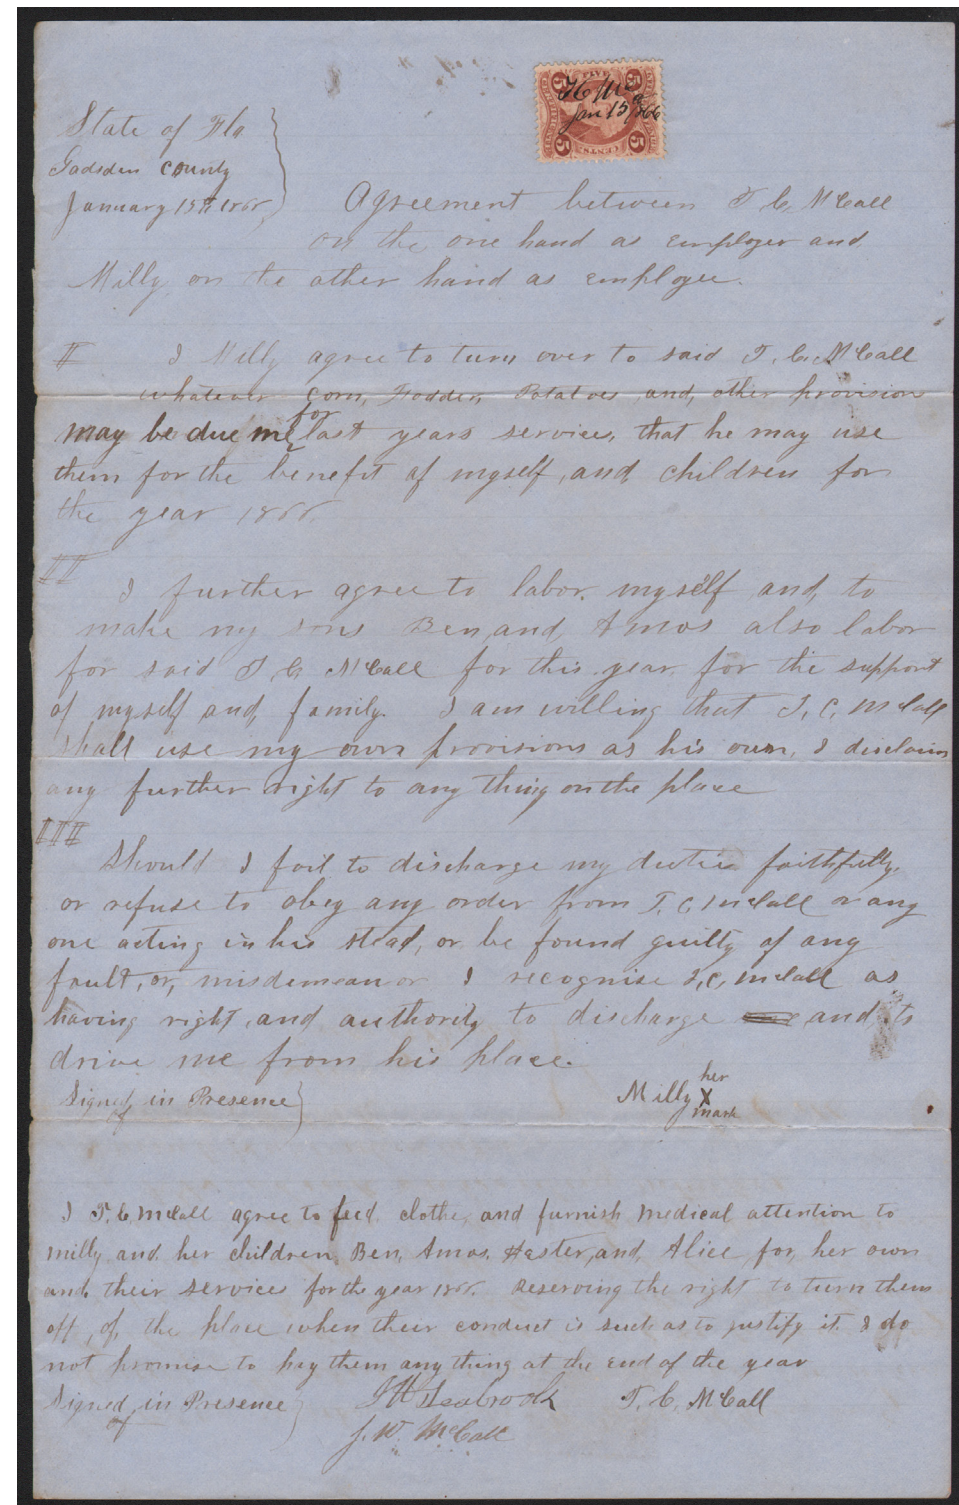 5 FIVE 5
T C Mc
Jan 15th/66
5 CENTS 5
State of Fla
Gadsden County
January 15th 1866
Agreement between T C, McCall
on the one hand as employer and
Milly on the other hand as employee.
I
I Milly agree to turn over to said T. C. McCall
whatever corn, Fodder, Potatoes and, other provision
for
may be due me last years services, that he may use
them for the benefit of myself, and children for
the year 1866.
II
I further agree to labor. myself and, to
make my sons Ben, and, Amos also labor
for said T C McCall for this year for the support
of myself and, family. I am willing that T. C. McCall
shall use my own provisions as his own, I disclaim
any further right to any thing on the place
III
Should I fail to discharge my duties faithfully,
or refuse to obey any order from T. C McCall or any
one acting in his stead, or be found guilty of any
fault, or, misdemeanor I recognise T, C, McCall as
having right, and authority to discharge and to
drive me from his place.
Signed in Presence of
Milly her X mark
I T. C. McCall agree to feed. clothe, and furnish medical attention to
Milly and her children, Ben, Amos. Hester, and, Alice, for, her own
and their services for the year 1866. Reserving the right to turn them
off, of, the place when their conduct is such as to justify it. I do
not promise to pay them any thing at the end of the year
Signed in Presence of
J H Seabrook T. C. McCall
J. W. McCall